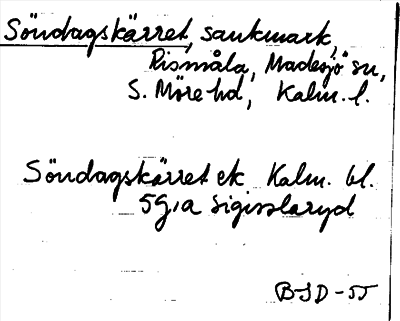 Söndagskärret, sankmark,
Rismåla, Madesjö sn,
S. Möre hd, Kalm. l.
Söndagskärret ek Kalm. bl.
5G,a Sigisslaryd
BJD-55